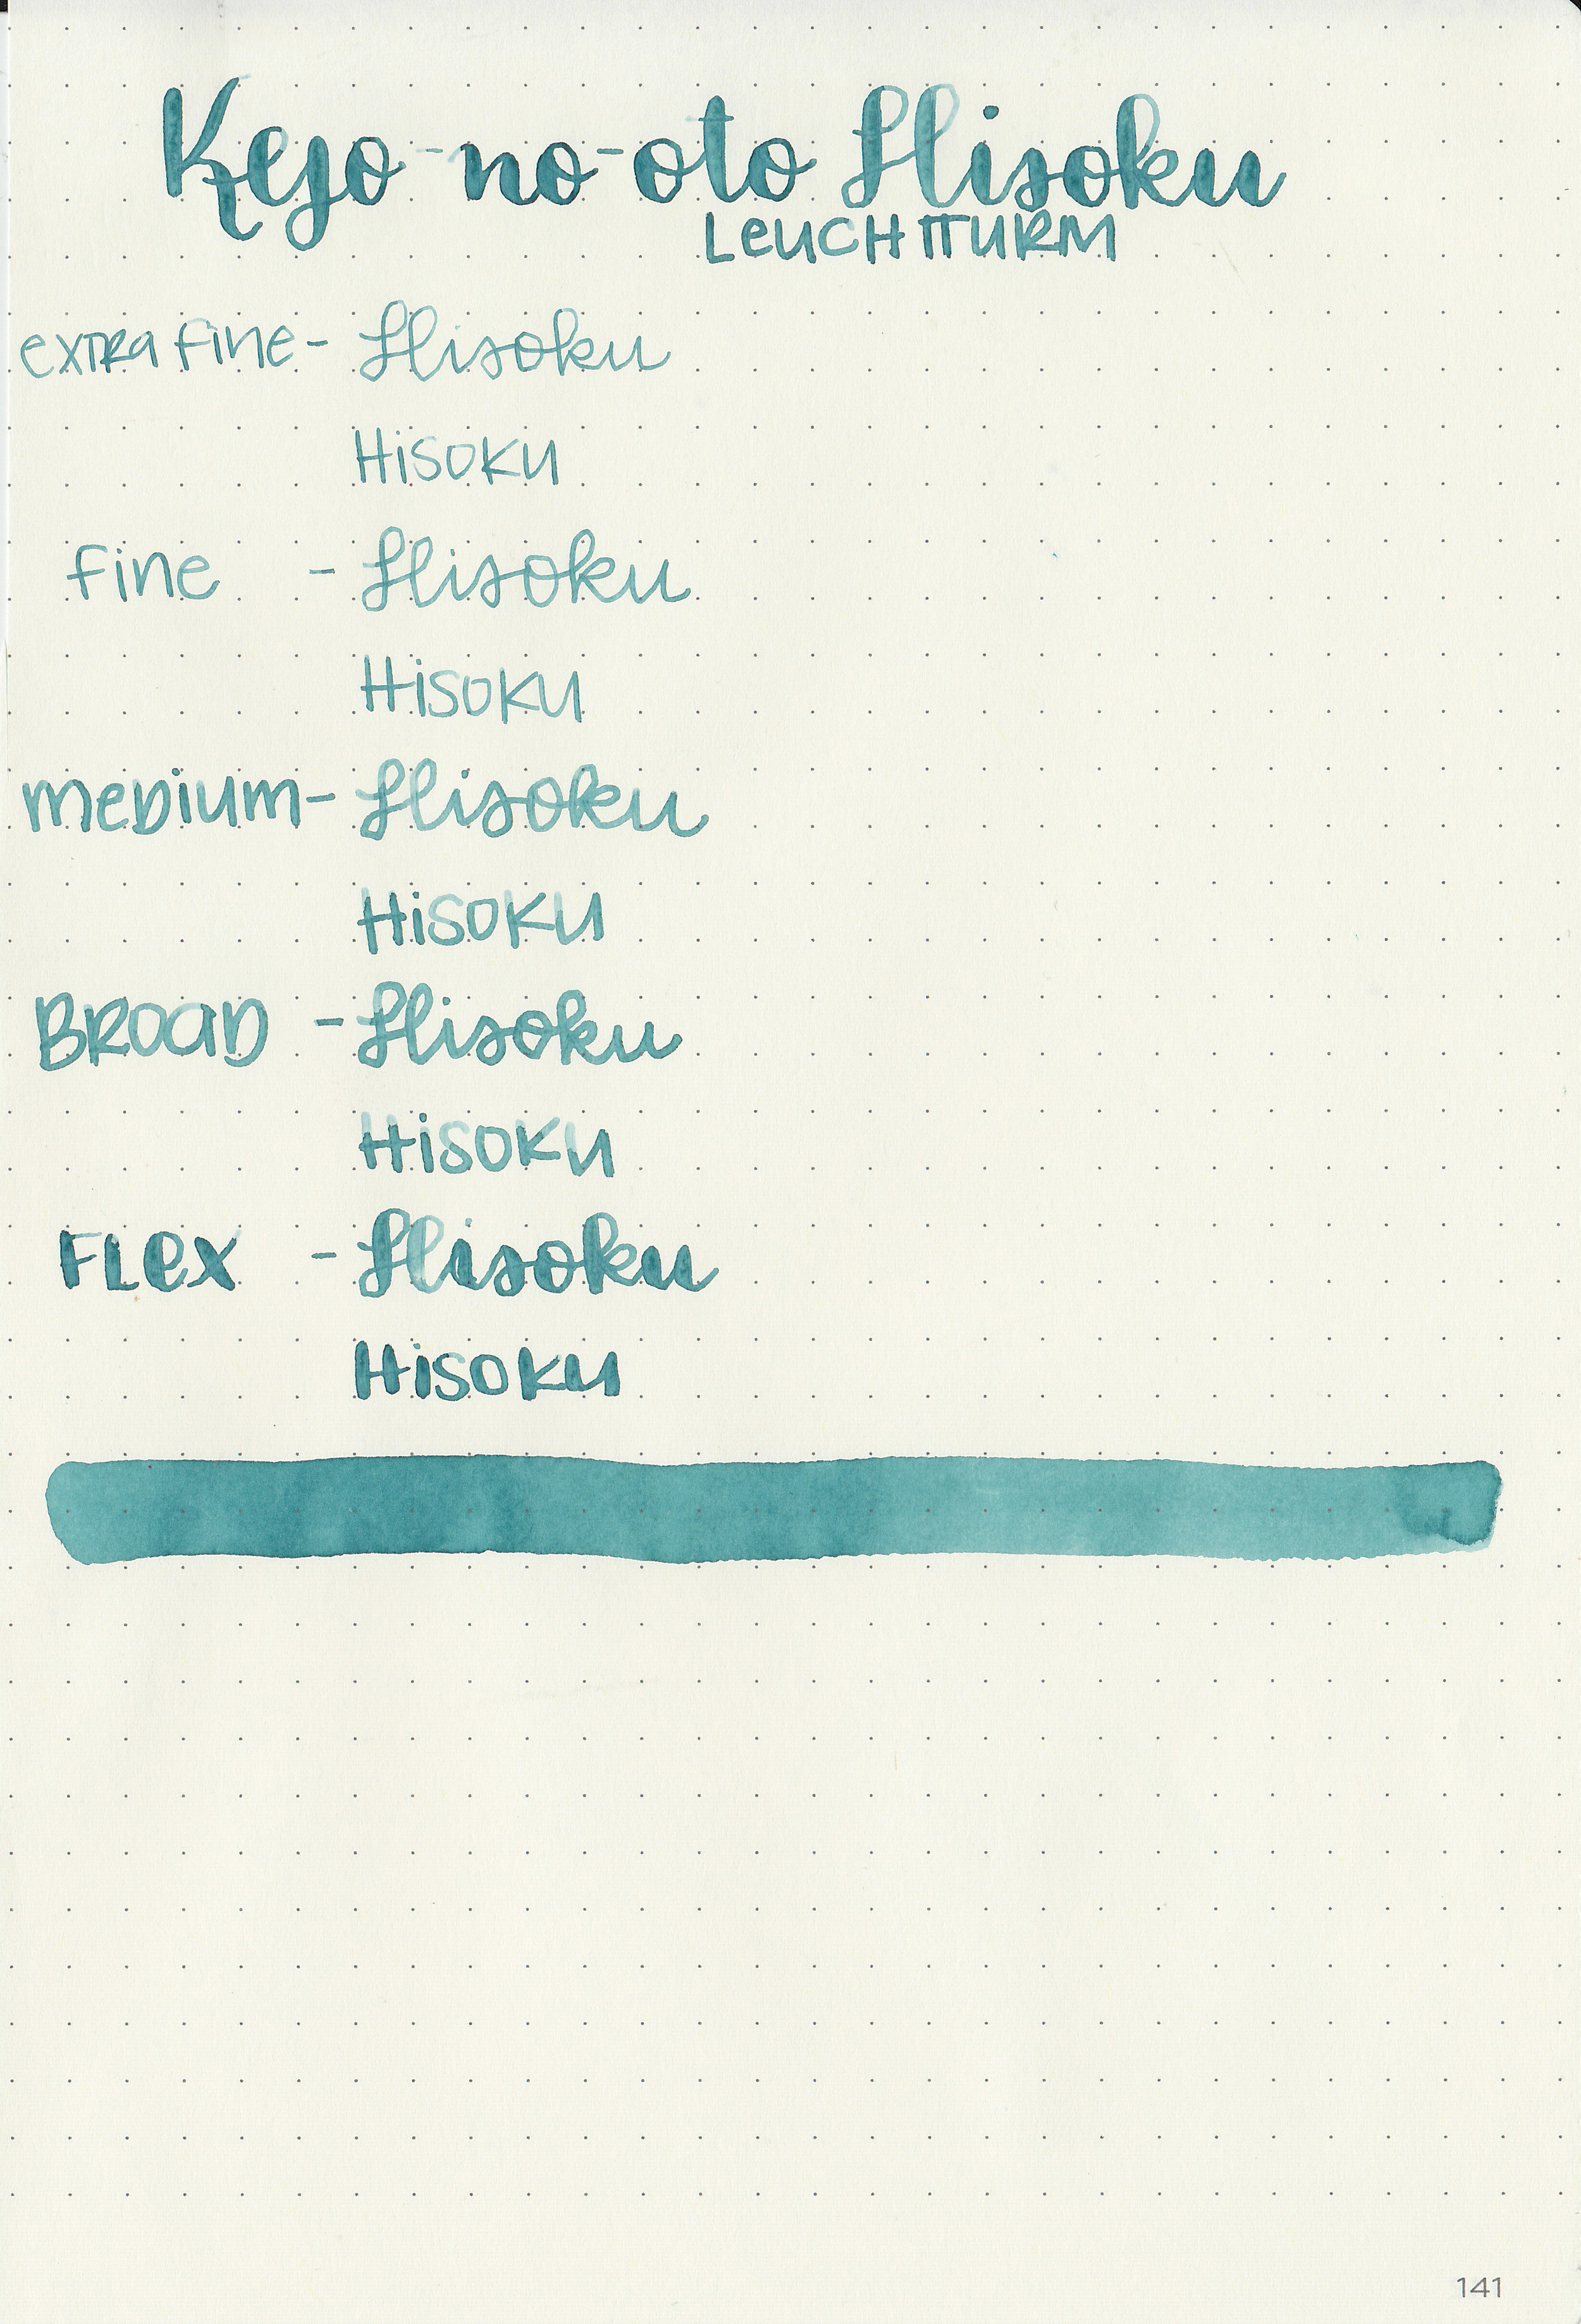 Kyo-no-oto Hisoku
LEUCHTTURM
extra fine- Hisoku
Hisoku
fine - Hisoku
Hisoku
medium- Hisoku
Hisoku
Broad - Hisoku
Hisoku
Flex - Hisoku
Hisoku
141